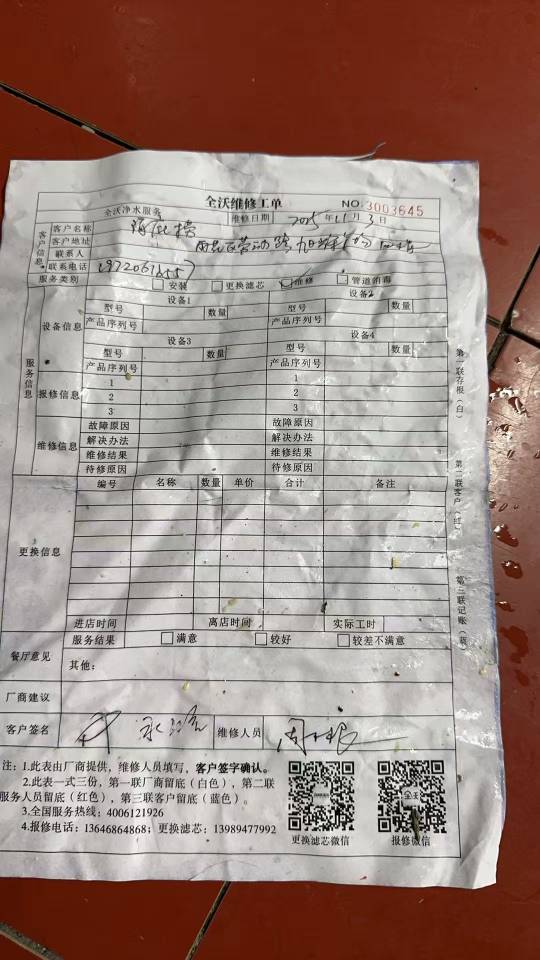 全沃维修工单
NO.3003645
全沃净水服务 维修日期 2025年11月3日
客户信息
客户名称
客户地址
联系人
联系电话
服务类别 安装 更换滤芯 维修 管道消毒
服务信息
设备信息
设备1 设备2
型号 数量 型号 数量
产品序列号 产品序列号
设备3 设备4
型号 数量 型号 数量
产品序列号 产品序列号
报修信息
1 1
2 2
3 3
维修信息
故障原因 故障原因
解决办法 解决办法
维修结果 维修结果
待修原因 待修原因
更换信息
编号 名称 数量 单价 合计 备注
进店时间 离店时间 实际工时
餐厅意见
服务结果 满意 较好 较差不满意
其他:
厂商建议
客户签名 维修人员
注: 1.此表由厂商提供，维修人员填写，客户签字确认。
2.此表一式三份，第一联厂商留底（白色），第二联
服务人员留底（红色），第三联客户留底（蓝色）。
3.全国服务热线: 4006121926
4.报修电话: 13646864868; 更换滤芯: 13989477992
更换滤芯微信
全沃
报修微信
第一联存根（白）
第二联客户（红）
第三联记账（蓝）